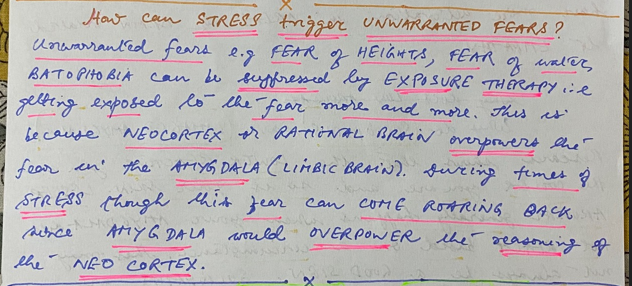 How can STRESS trigger UNWARRANTED FEARS?
Unwarranted fears e.g FEAR of HEIGHTS, FEAR of water,
BATOPHOBIA can be suppressed by EXPOSURE THERAPY i.e
getting exposed to the fear more and more. This is
because NEOCORTEX or RATIONAL BRAIN overpowers the
fear in the AMYGDALA (LIMBIC BRAIN). During times of
STRESS though this fear can COME ROARING BACK
since AMYGDALA would OVERPOWER the reasoning of
the NEO CORTEX.